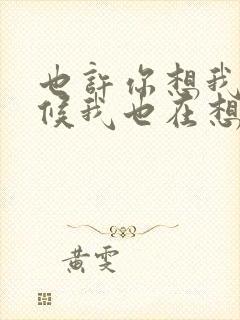 也許你想我
候我也在想
黃雯